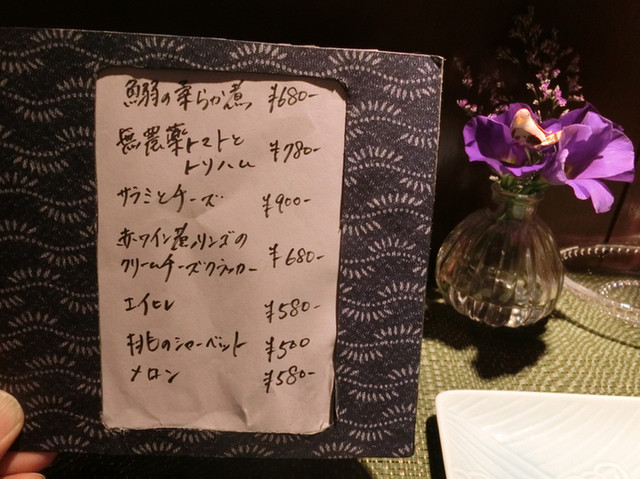 鰯の柔らか煮 ¥680-
無農薬トマトと
トリハム ¥780-
サラミとチーズ ¥900-
赤ワイン煮リンゴの
クリームチーズクラッカー ¥680-
エイヒレ ¥580-
桃のシャーベット ¥500
メロン ¥580-